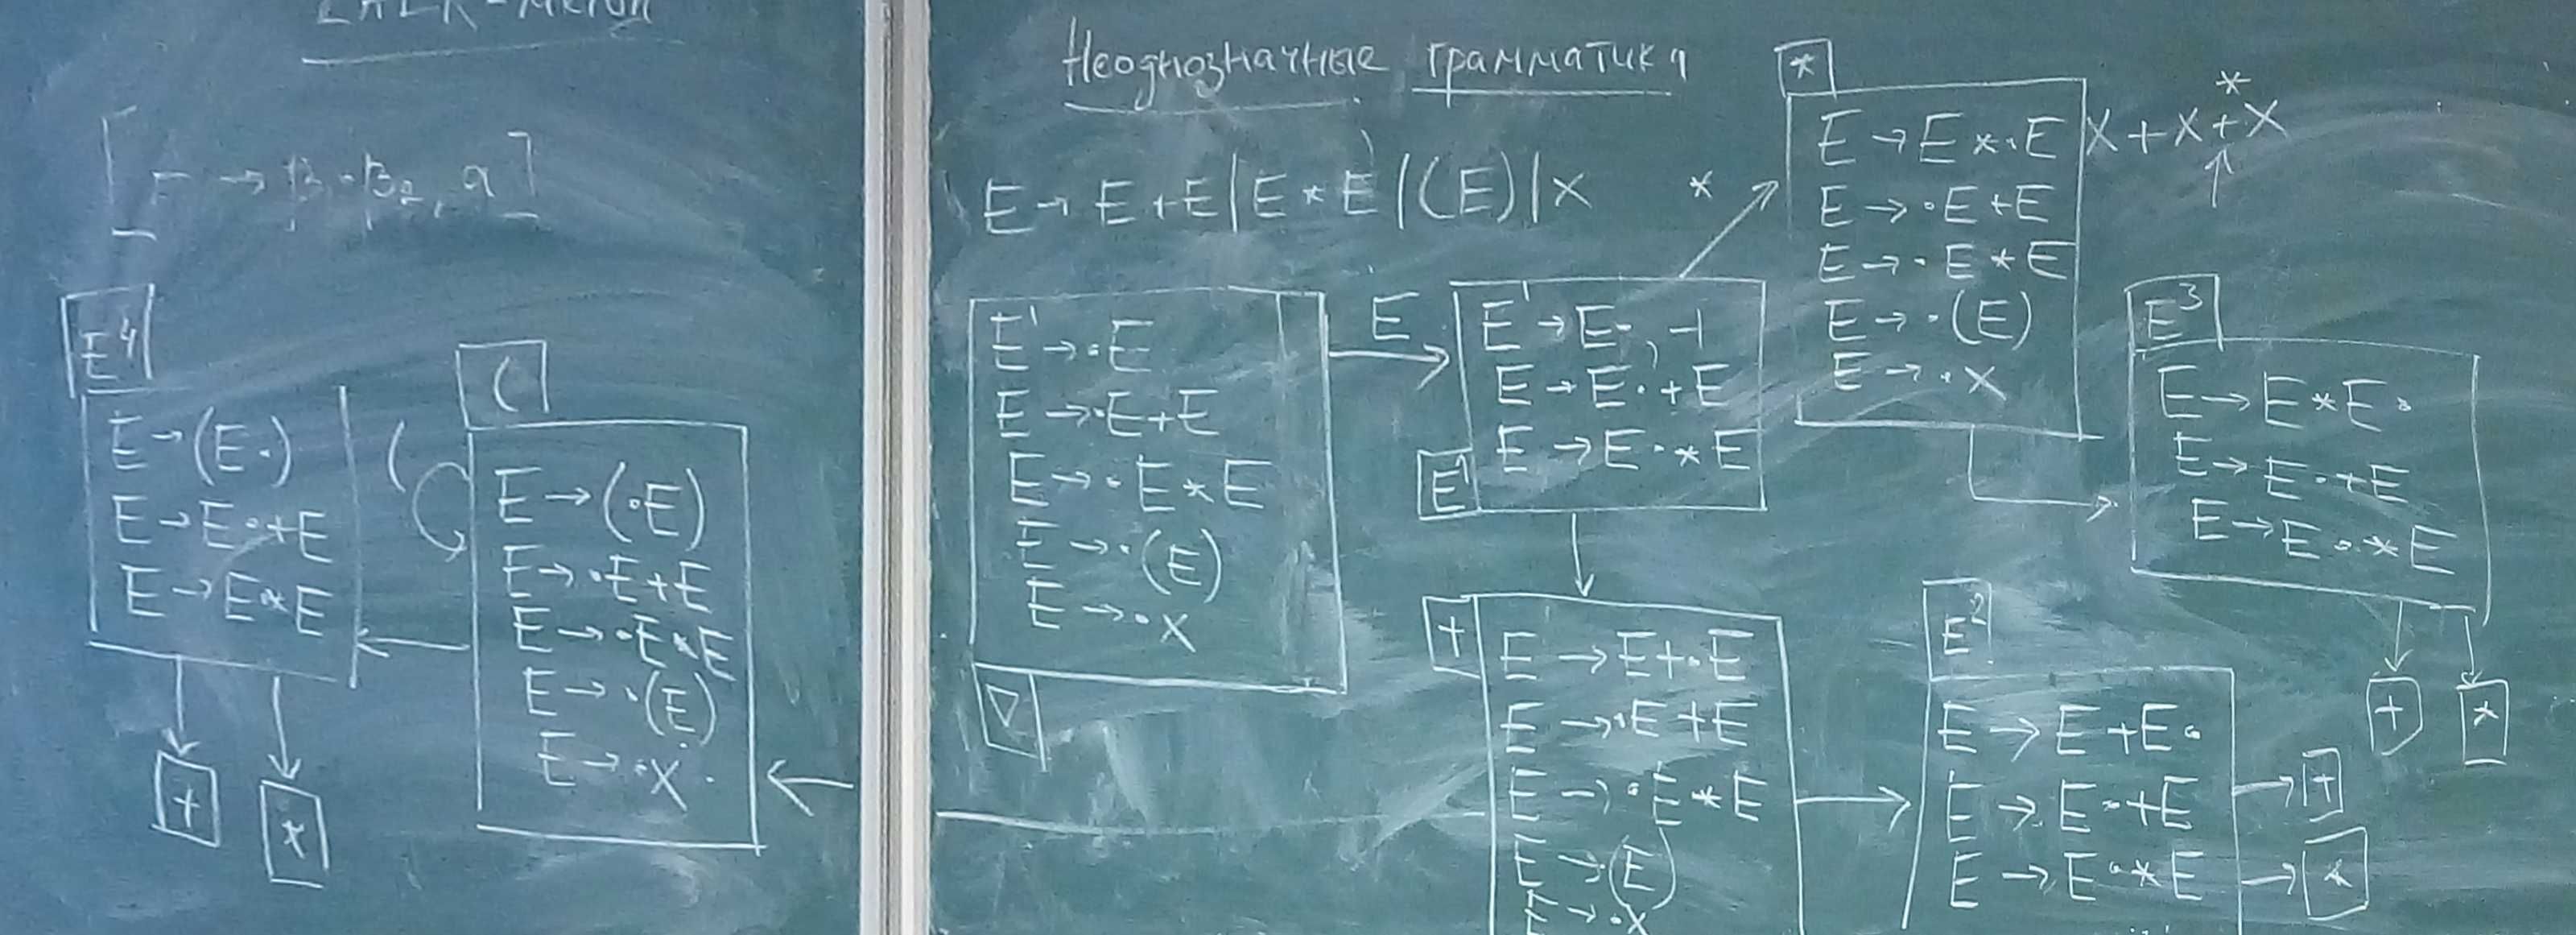 LALR-метод
[E → β₁·β₂, a]
E⁴
E → (E·)
E → E·+E
E → E·*E
+
*
(
(
E → (·E)
E → ·E+E
E → ·E*E
E → ·(E)
E → ·x
Неоднозначные грамматики
E → E+E|E*E|(E)|x
E' → ·E
E → ·E+E
E → ·E*E
E → ·(E)
E → ·x
▽
E
E' → E·, ⊣
E → E·+E
E → E·*E
E¹
*
*
E → E*·E
E → ·E+E
E → ·E*E
E → ·(E)
E → ·x
*
x+x+x
↑
E³
E → E*E·
E → E·+E
E → E·*E
+
*
+
E → E+·E
E → ·E+E
E → ·E*E
E → ·(E)
E → ·x
E²
E → E+E·
E → E·+E
E → E·*E
+
*